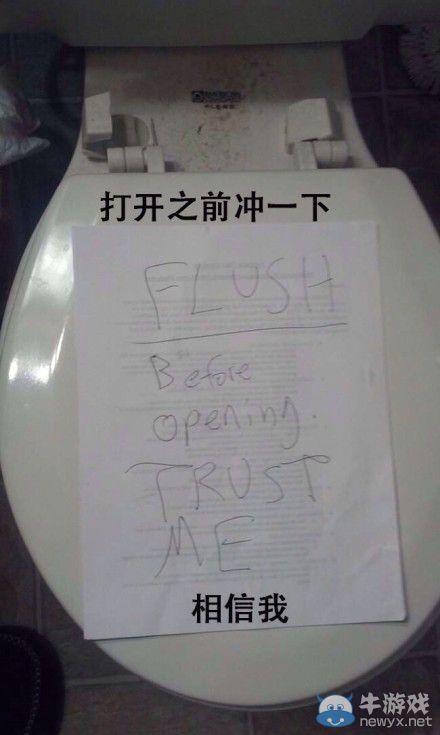 打开之前冲一下
FLUSH
Before
opening.
TRUST
ME
相信我
牛游戏
newyx.net